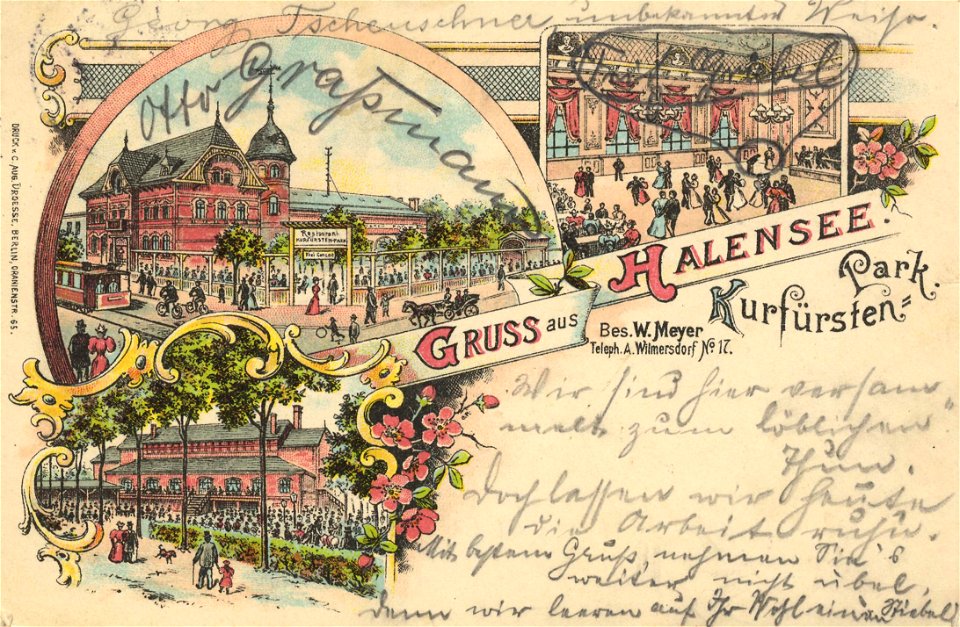 Georg Tschenschner unbekannter Weise.
Otto Graßmann
Griebel
DRUCK v. C. AUG. DROESSE, BERLIN, ORANIENSTR. 65.
Restaurant
KURFÜRSTEN-PARK
GRUSS aus HALENSEE.
Kurfürsten=
Park.
Bes. W. Meyer
Teleph. A. Wilmersdorf No 17.
Wir sind hier versam„
melt zum löblichen
Thun.
Doch lassen wir heute
die Arbeit ruhn.
Mit bestem Gruß, nehmen Sie's
weiter nicht übel,
denn wir leeren auf Ihr Wohl einen Stiebel